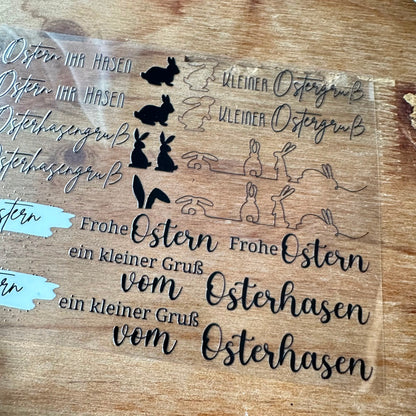 Ostern IHR HASEN
KLEINER Ostergruß
Ostern IHR HASEN
KLEINER Ostergruß
Osterhasengruß
Osterhasengruß
Ostern
Frohe Ostern Frohe Ostern
ein kleiner Gruß
vom Osterhasen
ein kleiner Gruß
vom Osterhasen